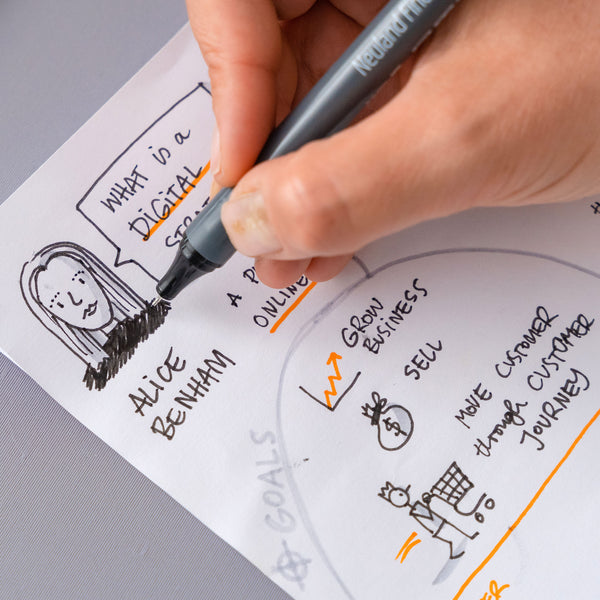 Neuland
WHAT is a
DIGITAL
A
ONLINE
ALICE
BENHAM
GROW
BUSINESS
SELL
$
MOVE CUSTOMER
through CUSTOMER
JOURNEY
GOALS